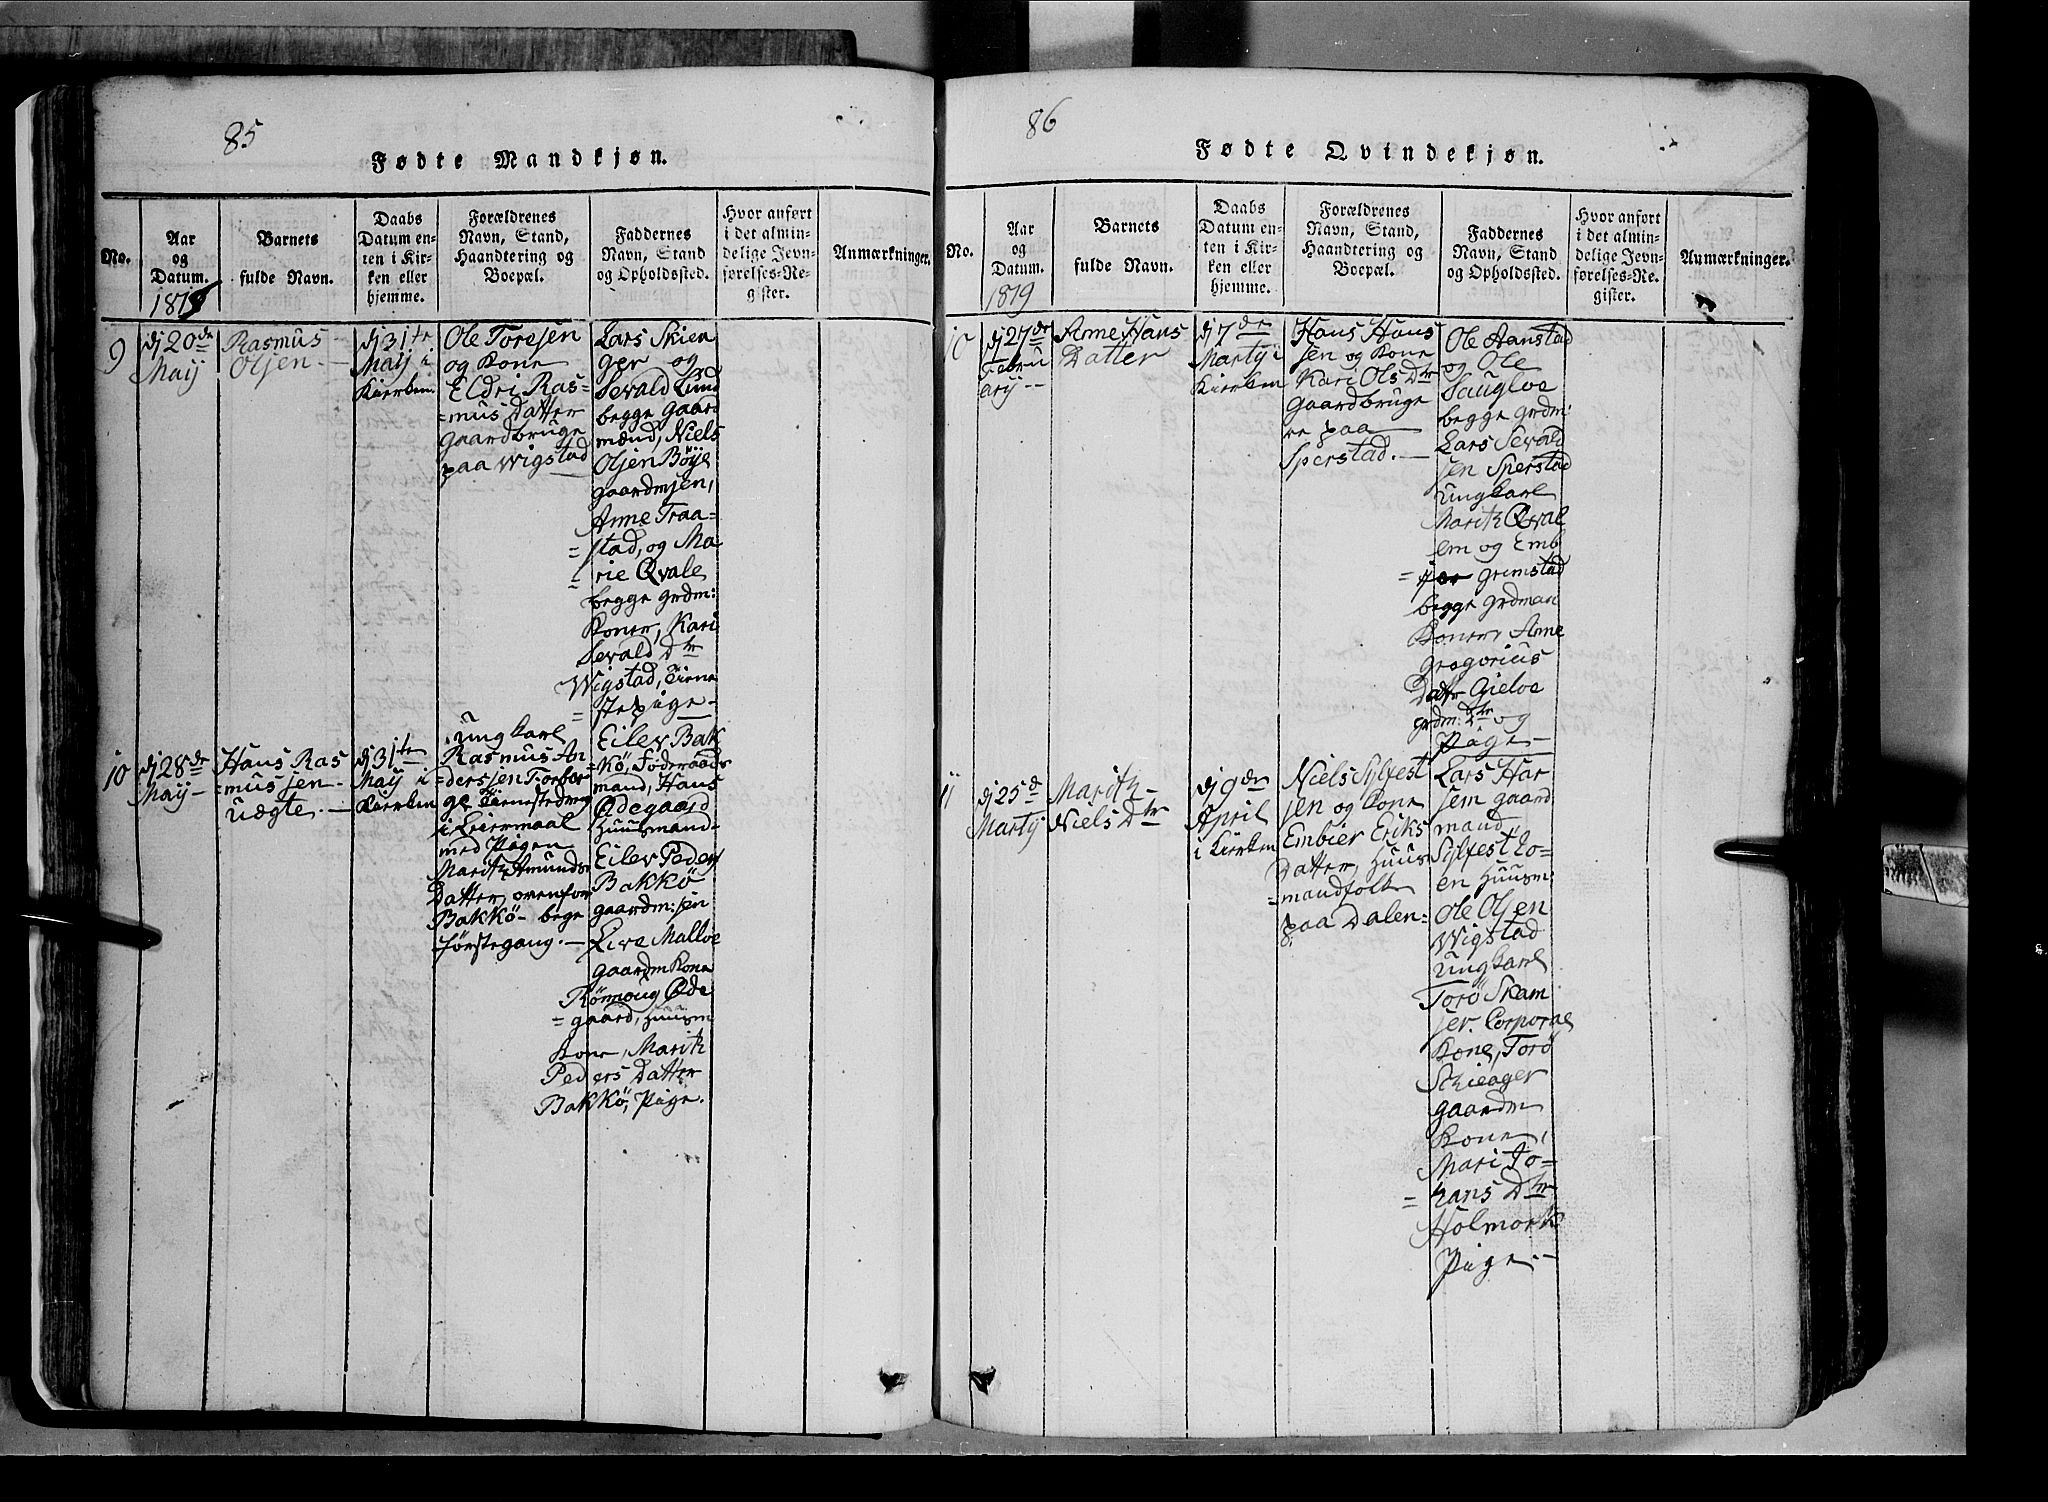 85
Fødte Mandkjøn.
No.
Aar
og
Datum.
1819
Barnets
fulde Navn.
Daabs
Datum en-
ten i Kir-
ken eller
hjemme.
Forældrenes
Navn, Stand,
Haandtering og
Boepæl.
Faddernes
Navn, Stand
og Opholdssted.
Hvor anført
i det almin-
delige Jevn-
førelses-Re-
gister.
Anmærkninger.
9
dj 20de
Maij
Rasmus
Olsen.
dj 31te
Maij i
Kierken
Ole Toresen
og Kone
Eldri Ras-
=mus Datter
Gaardbruge
paa Wigstad
Lars Skien
ger og
Sevald Lund
begge Gaard
mænd, Niels
Olsen Böye
gaardmsen,
Anne Traa=
=stad, og Ma
=rie Qvale
begge grdm:
Koner, Kari
Sevald Dtr
Wigstad, Tiene
=stepige
10
dj 28de
Maij
Hans Ras
mussen
uægte.
dj 31te
Maij i
Kierken
Ungkarl
Rasmus An
derssen Torber
ge Tienestedreng
i Leiermaal
med Pigen
Marith Amunds
Datter, ovenfor
Bakkö- bege
förstegang.
Eilev Bak
=kö, Föderaads
mand, Hans
Ödegaard
Huusmand
Eilev Peders
Bakkö
gaardm:sen
Live Malloe
gaardm Kone
Rönnoug Öde
=gaard, Huusm
Kone, Marith
Peders Datter
Bakkö, Pige.
86
Fødte Qvindekjøn.
No.
Aar
og
Datum.
1819
Barnets
fulde Navn.
Daabs
Datum en-
ten i Kir-
ken eller
hjemme.
Forældrenes
Navn, Stand,
Haandtering og
Boepæl.
Faddernes
Navn, Stand
og Opholdssted.
Hvor anført
i det almin-
delige Jevn-
førelses-Re-
gister.
Anmærkninger.
10
dj 27de
Febru
arij
Anne Hans
Datter
dj 7de
Martij i
Kierken
Hans Hans
sen og Kone
Kari Ols Dtr
Gaardbruge
re paa
Sperstad.
Ole Aanstad
og Ole
Saugloe
begge grdm:
Lars Sevald
sen Sperstad
Ungkarl
Marith Qval
em og Emb
= Grimstad
begge grdman
Koner, Anne
Gregorius
Datr Gieloe
grdm: Dtr og
Pige
11
dj 25de
Martij
Marith
Niels Dtr
dj 9de
April
i Kierken
Niels Sylfest
sen og Kone
Embier Eriks
Datter, Huus
=mandfolk
paa Dalen=
Lars Har
sem gaard
mand,
Sylfest Lo-
en Huusm:
Ole Olsen
Wigstad
Ungkarl
Torö Skam
ser. Corporal
Kone, Torö
Schieager
gaardm
Kone,
Mari Jo=
=hans Dtr
Holmork
Pige.